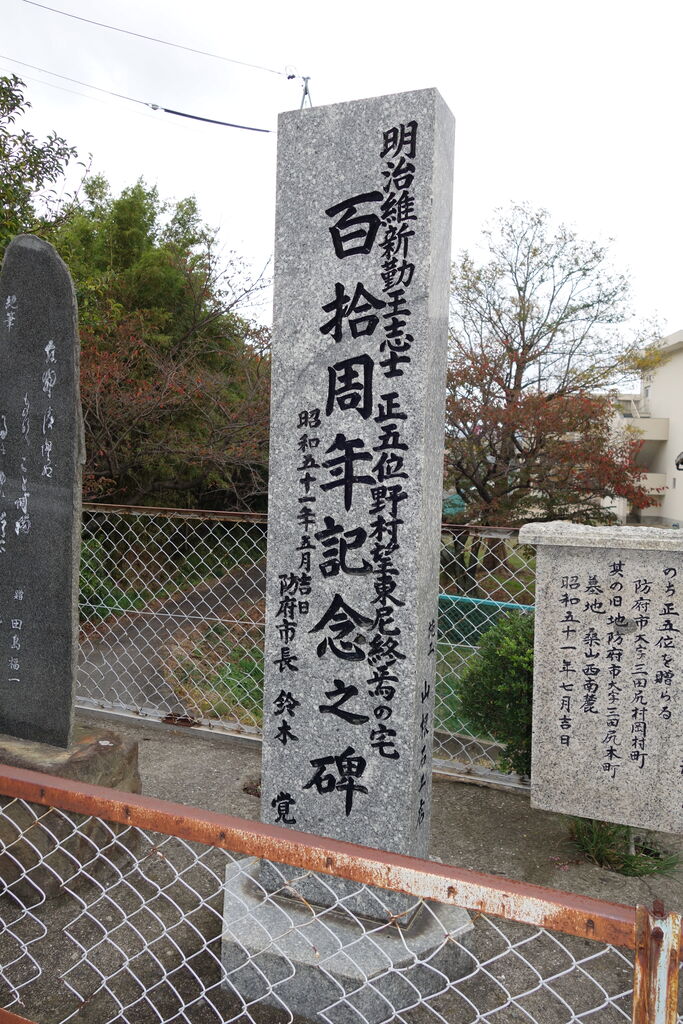 明治維新勤王志士 正五位野村望東尼終焉の宅
百拾周年記念之碑
昭和五十一年五月吉日
防府市長 鈴木 覚
山根石工店
のち正五位を贈らる
防府市大字三田尻村岡村町
其の旧地防府市大字三田尻本町
墓地 桑山西南麓
昭和五十一年七月吉日
絶筆
田島福一